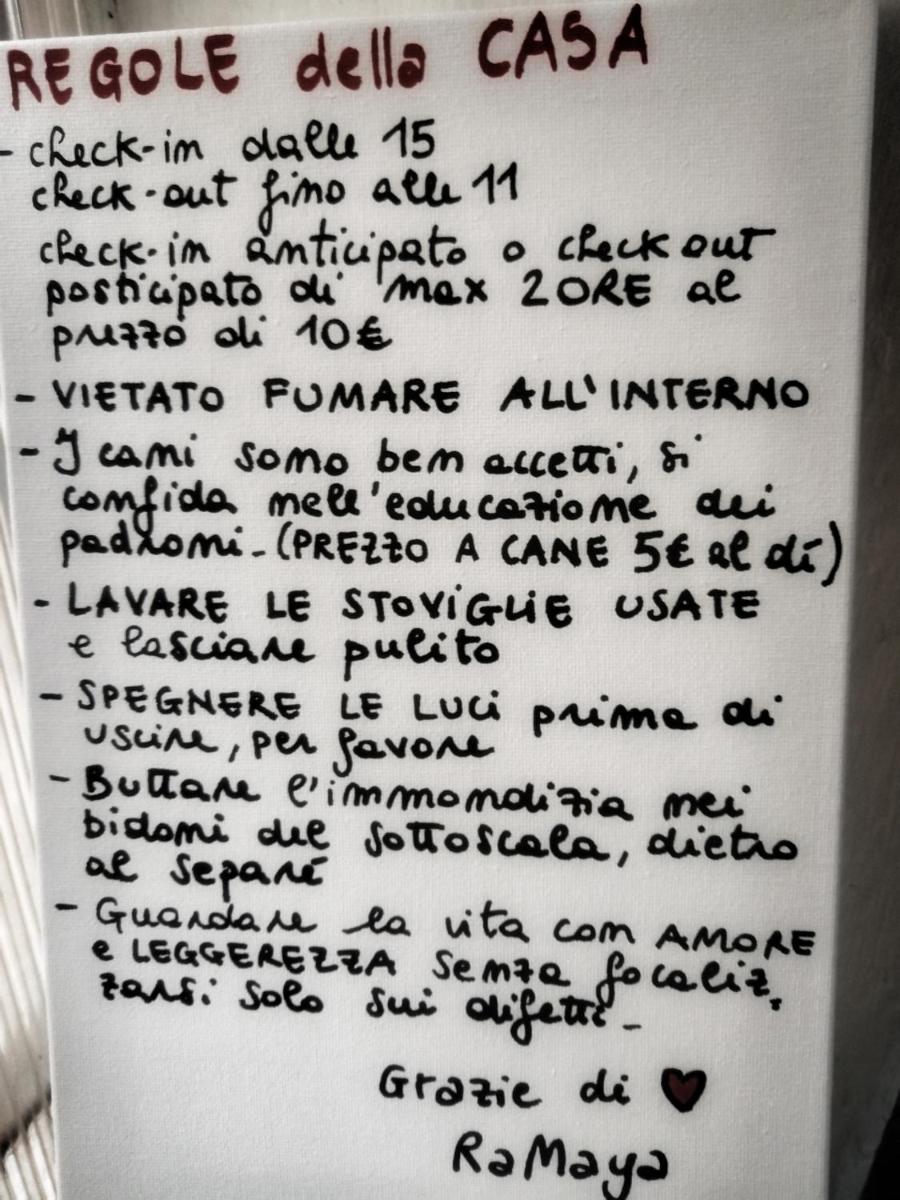 REGOLE della CASA
- check-in dalle 15
check-out fino alle 11
check-in anticipato o check out
posticipato di max 2 ORE al
prezzo di 10€
- VIETATO FUMARE ALL'INTERNO
- I cani sono ben accetti, si
confida nell'educazione dei
padroni - (PREZZO A CANE 5€ al dí)
- LAVARE LE STOVIGLIE USATE
e lasciare pulito
- SPEGNERE LE LUCI prima di
uscire, per favore
- Buttare l'immondizia nei
bidoni del sottoscala, dietro
al separé
- Guardare la vita con AMORE
e LEGGEREZZA senza focaliz.
zarsi solo sui difetti -
Grazie di ♥
RaMaya